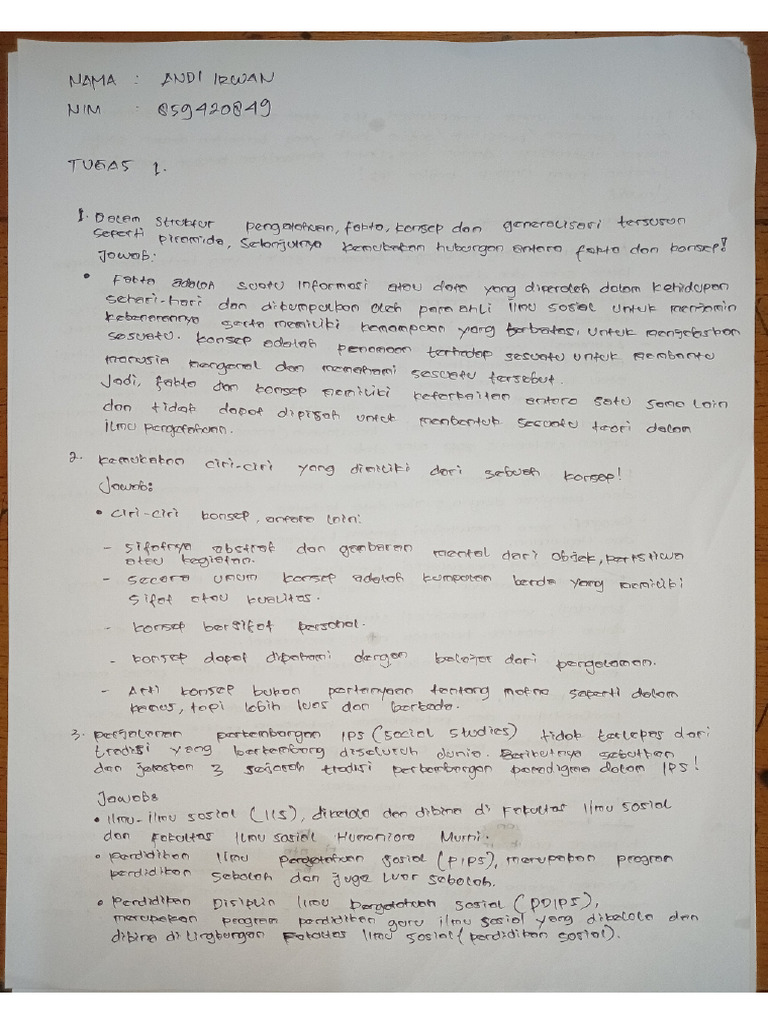 NAMA : ANDI IRWAN
NIM : 859420849
TUGAS 1.
1. Dalam struktur pengetahuan, fakta, konsep dan generalisasi tersusun
seperti piramida, selanjutnya kemukakan hubungan antara fakta dan konsep!
Jawab:
• Fakta adalah suatu informasi atau data yang diperoleh dalam kehidupan
sehari-hari dan dikumpulkan oleh para ahli ilmu sosial untuk menjamin
kebenarannya serta memiliki kemampuan yang terbatas, untuk mengjelaskan
sesuatu. Konsep adalah penamaan terhadap sesuatu untuk membantu
manusia mengenal dan memahami sesuatu tersebut.
Jadi, fakta dan konsep memiliki keterkaitan antara satu sama lain
dan tidak dapat dipisah untuk membentuk sesuatu teori dalam
ilmu pengetahuan.
2. Kemukakan ciri-ciri yang dimiliki dari sebuah konsep!
Jawab:
• Ciri-ciri konsep, antara lain:
- Sifatnya abstrak dan gambaran mental dari objek, peristiwa
atau kegiatan.
- Secara umum konsep adalah kumpulan benda yang memiliki
sifat atau kualitas.
- Konsep bersifat personal.
- Konsep dapat dipahami dengan belajar dari pengalaman.
- Arti konsep bukan pertanyaan tentang makna seperti dalam
kamus, tapi lebih luas dan berbeda.
3. Perjalanan perkembangan IPS (social studies) tidak terlepas dari
tradisi yang berkembang diseluruh dunia. Berikutnya sebutkan
dan jelaskan 3 sejarah tradisi perkembangan paradigma dalam IPS!
Jawab:
• Ilmu-ilmu sosial (IIS), dikelola dan dibina di Fakultas Ilmu sosial
dan Fakultas Ilmu sosial Humaniora Murni.
• Pendidikan Ilmu Pengetahuan Sosial (PIPS), merupakan program
pendidikan sekolah dan juga luar sekolah.
• Pendidikan Disiplin Ilmu Pengetahuan Sosial (PDIPS),
merupakan program pendidikan guru ilmu sosial yang dikelola dan
dibina di lingkungan Fakultas Ilmu sosial (pendidikan sosial).